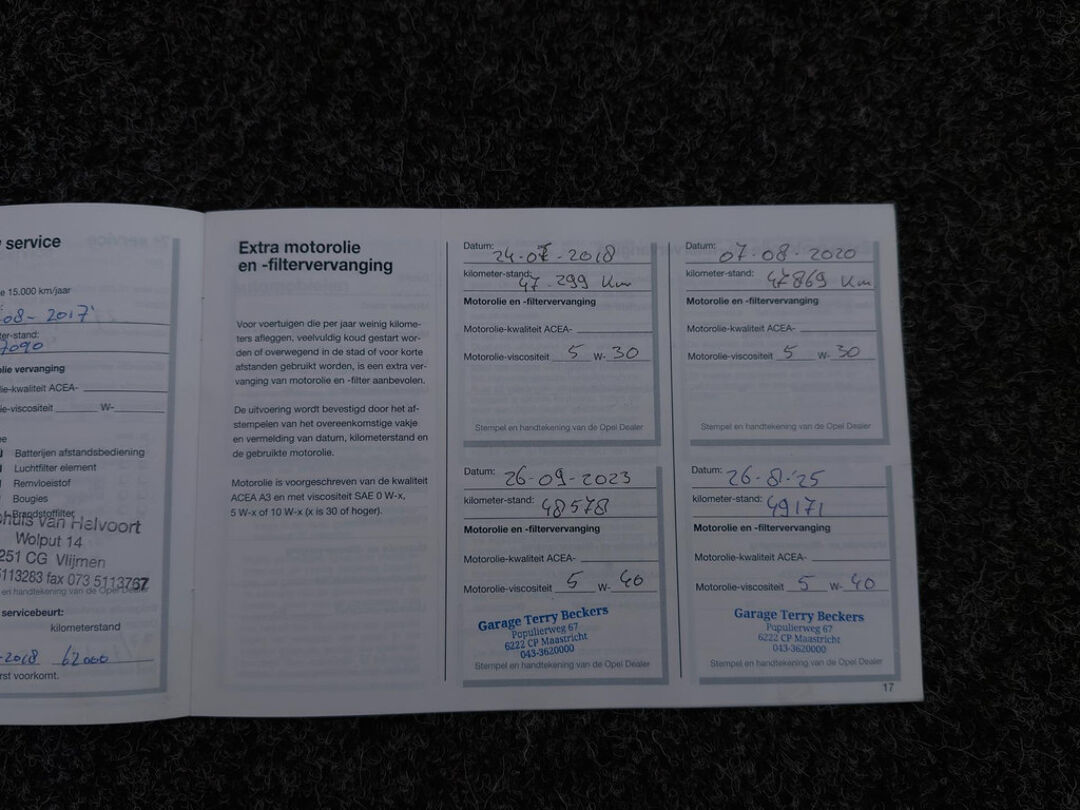 service
e 15.000 km/jaar
08-2017
ter-stand:
7090
lie vervanging
lie-kwaliteit ACEA-
ie-viscositeit W-
Batterijen afstandsbediening
Luchtfilter element
Remvloeistof
Bougies
Brandstoffilter
huis van Helvoort
Wolput 14
251 CG Vlijmen
5113283 fax 073 5113767
en handtekening van de Opel Dealer
servicebeurt:
kilometerstand
-2018 62000
rst voorkomt.
Extra motorolie
en -filtervervanging
Voor voertuigen die per jaar weinig kilome-
ters afleggen, veelvuldig koud gestart wor-
den of overwegend in de stad of voor korte
afstanden gebruikt worden, is een extra ver-
vanging van motorolie en -filter aanbevolen.
De uitvoering wordt bevestigd door het af-
stempelen van het overeenkomstige vakje
en vermelding van datum, kilometerstand en
de gebruikte motorolie.
Motorolie is voorgeschreven van de kwaliteit
ACEA A3 en met viscositeit SAE 0 W-x,
5 W-x of 10 W-x (x is 30 of hoger).
Datum: 24-07-2018
kilometer-stand: 47.299 Km
Motorolie en -filtervervanging
Motorolie-kwaliteit ACEA-
Motorolie-viscositeit 5 W-30
Stempel en handtekening van de Opel Dealer
Datum: 26-09-2023
kilometer-stand: 48578
Motorolie en -filtervervanging
Motorolie-kwaliteit ACEA-
Motorolie-viscositeit 5 W-40
Garage Terry Beckers
Populierweg 67
6222 CP Maastricht
043-3620000
Stempel en handtekening van de Opel Dealer
Datum: 07-08-2020
kilometer-stand: 47869 Km
Motorolie en -filtervervanging
Motorolie-kwaliteit ACEA-
Motorolie-viscositeit 5 W-30
Stempel en handtekening van de Opel Dealer
Datum: 26-8-'25
kilometer-stand: 49171
Motorolie en -filtervervanging
Motorolie-kwaliteit ACEA-
Motorolie-viscositeit 5 W-40
Garage Terry Beckers
Populierweg 67
6222 CP Maastricht
043-3620000
Stempel en handtekening van de Opel Dealer
17